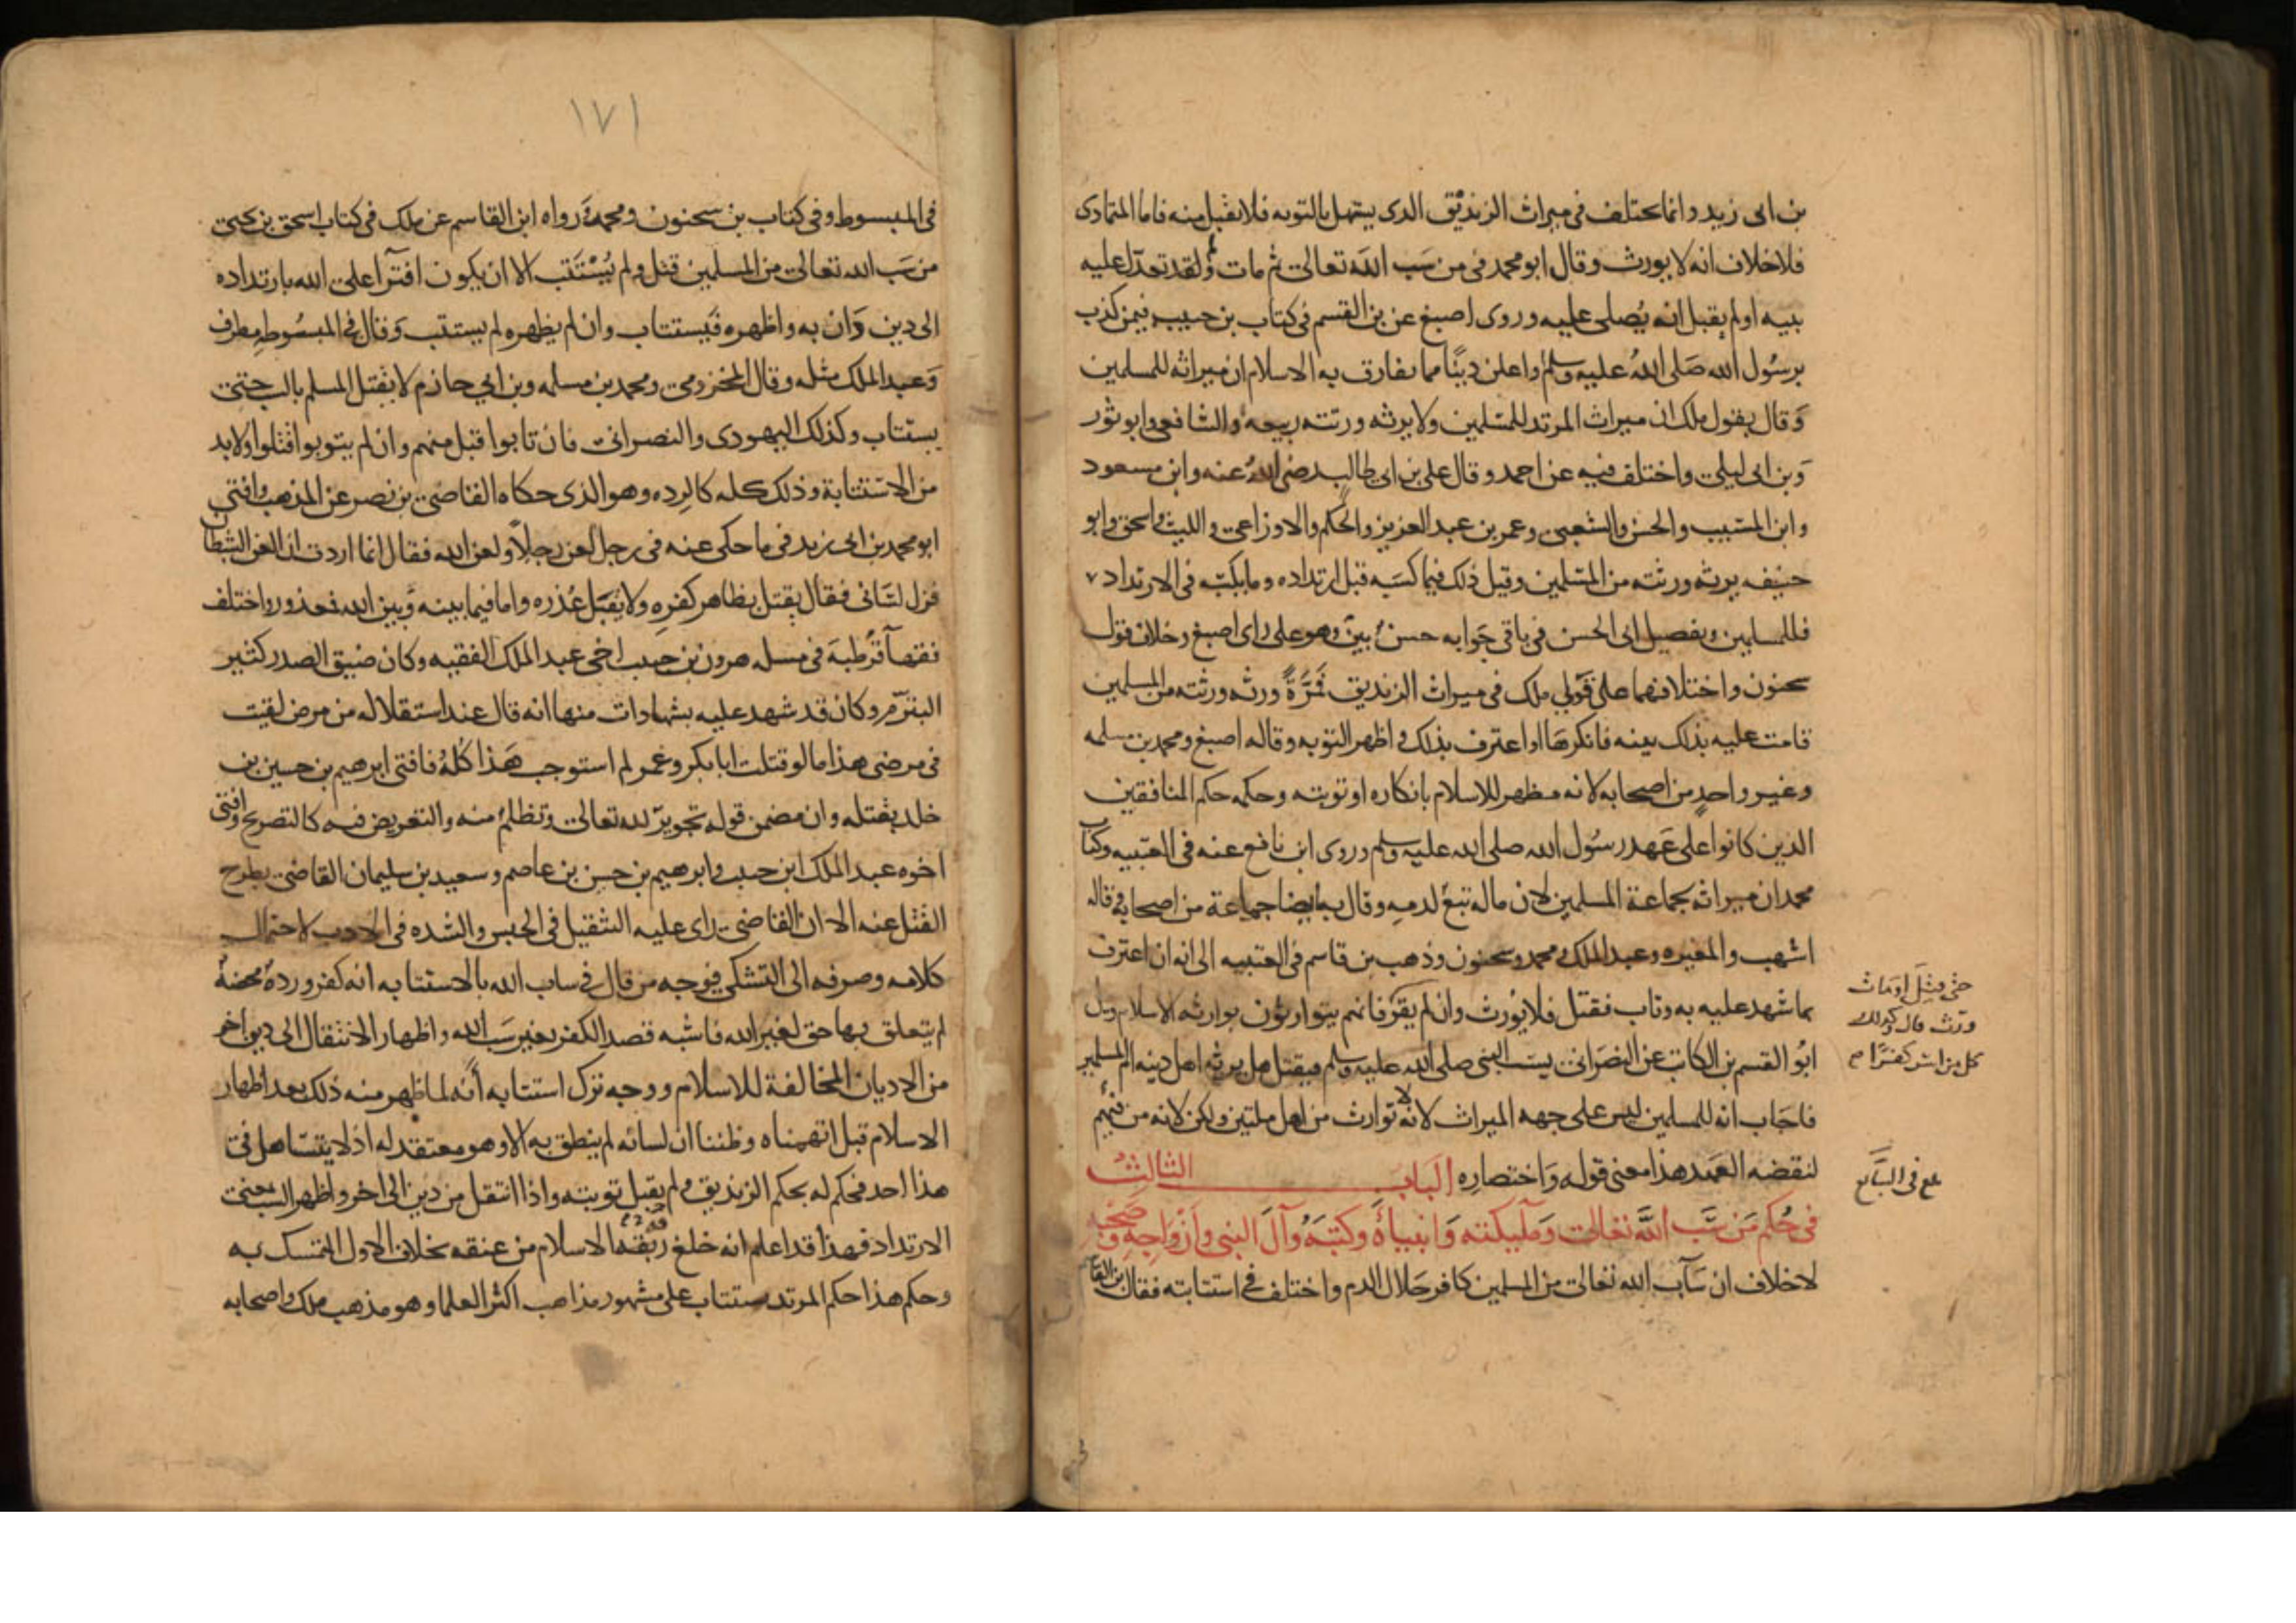 بن ابى زيد وانما يختلف فى ميراث الزنديق الذى يستهل بالتوبه فلا تقبل منه فاما المتمادى
فلا خلاف انه لا يورث وقال ابو محمد فى من سَب اللهَ تعالى ثم مات ولقد تعدل عليه
بينه او لم يقبل انه يُصلى عليه وروى اصبغ عن بن القسم فى كتاب بن حبيب فيمن كذب
برسُول الله صَلى اللهُ عليه وسلم او اعلن دينًا مما يفارق به الاسلام ان ميراثه للمسلمين
وَقال بقول ملك ان ميراث المرتد للمسلمين ولا يرثه ورثته ربيعه والشافعى وابو ثور
وَبن ابى ليلى واختلف فيه عن احمد وقال على بن ابى طالب رضى اللهُ عنه وابن مسعود
وابن المسيب والحسن والشعبى وعمر بن عبد العزيز والحكم والاوزاعى والليث واسحق وابو
حنيفه يرثه ورثته من المسلمين وقيل ذلك فيما كسَبه قبل ارتداده وما يكسبه فى الارتداد
فللمسلمين وتفصيل ابى الحسن فى باقى جَوابه حسن بين وهو على راى اصبغ وخلاف قول
سحنون واختلافهما على قَولى ملك فى ميراث الزنديق فَمَرَّةً ورثه ورثته من المسلمين
قامت عليه بذلك بينه فانكرهَا او اعترف بذلك واظهر التوبه وقاله اصبغ ومحمد بن مسلمه
وغير واحدٍ من اصحابه لانه مظهر للاسلام بانكاره او توبته وحكمه حكم المنافقين
الذين كانوا على عَهد رسُول الله صلى الله عليه وسلم وروى ابن نافع عنه فى العتبيه وكتاب
محمد ان ميراثه لجماعة المسلمين لان ماله تبع لدمه وقال به ايضا جماعة من اصحابه قاله
اشهب والمغيره وعبد الملك ومحمد وسحنون وذهب بن قاسم فى العتبيه الى انه ان اعترف
بما شهد عليه به وتاب فقتل فلا يُورث وان لم يقر فانهم يتوارثون بوارثه الاسلام وسئل
ابُو القسم بن الكاتب عن النصَرانى يسبّ النبى صلى الله عليه وسلم فيقتل هل يرثه اهل دينه ام المسلمين
فاجَاب انه للمسلمين ليس على جهه الميراث لانه لا توارث من اهل ملتين ولكن لانه من فيئهم
لنقضه العَهد هذا معنى قوله وَاختصارِه البَاب الثالثُ
فى حُكم مَن سَّب اللَّه تعالى وَملَيكته وَانبياَه وكتبَه وآل النبى وازواجه وصَحبِه
لا خلاف ان سَآب الله تعالى من المسلمين كافر حَلال الدم واختلف فى استتابته فقال بن القاسم
حتى قتِل اومَات
ورث قال وكذلك
كل من اسر كفرًا صح
بلغ فى السَّابع
١٧١
فى المبسوط وفى كتاب بن سحنون ومحمد ورواه ابن القاسم عن ملك فى كتاب اسحق بن يحيى
من سَب الله تعالى من المسلمين قتل ولم يُسْتَتب الا ان يكون افترآ على الله بارتداده
الى دين دَان به واظهره فيُستتاب وان لم يظهره لم يستتب وَقال فى المبسُوط مطرف
وَعبد الملك مثله وقال المخزومى ومحمد بن مسلمه وبن ابى حازم لا يقتل المسلم بالسب حتى
يستتاب وكذلك اليهودى والنصرانى فان تابوا قبل منهم وان لم يتوبوا اقتلوا ولا بد
من الاستتابة وذلك كله كالرده وهو الذى حكاه القاضى بن نصر عن المذهب وافتى
ابو محمد بن ابى زيد فى ما حكى عنه فى رجل لعن رجلاً ولعن الله فقال انما اردت ان العن الشيطان
فزل لسَانى فقال يقتل بظاهر كفرِه ولا يقبل عُذره واما فيما بينه وَبين الله فمعذور واختلف
فقهآ قرُطبه فى مسله هرون بن حبيب اخى عبد الملك الفقيه وكان ضيق الصدر كثير
التبرّم وكان قد شهد عليه بشهادات منها انه قال عند استقلاله من مرض لقيت
فى مرضى هذا ما لو قتلت ابا بكر وعمر لم استوجب هَذا كُلهُ فافتى ابرهيم بن حسين بن
خلد بقتله وان مضمن قوله تجويرٌ لله تعالى وتظلم منه والتعريض فيه كالتصريح وافتى
اخوه عبد الملك ابن حبيب وابرهيم بن حسن بن عاصم وسعيد بن سليمان القاضى بطرح
القتل عنه الا ان القاضى راى عليه التثقيل فى الحبس والشده فى الادب لاحتمال
كلامه وصرفه الى التشكى فوجه من قال فى ساب الله بالاستتابه انه كفر وردة محضهُ
لم يتعلق بها حق لغير الله فاشبه قصد الكفر بغير سَب الله واظهار الانتقال الى دين اخر
من الاديان المخالفة للاسلام ووجه ترك استتابه انَه لما ظهر منه ذلك بعد اظهار
الاسلام قبل اتهمناه وظننا ان لسانه لم ينطق به الا وهو معتقد له اذ لا يتسَاهل فى
هذا احد فحكم له بحكم الزنديق ولم يقبل توبته واذا انتقل من دين الى اخر واظهر السب بمعنى
الارتداد فهذا قد اعلم انه خلغ ربقه الاسلام من عنقه بخلاف الاول المتمسك به
وحكم هذا حكم المرتد يستتاب على مشهور مذاهب اكثر العلما وهو مذهب ملك واصحابه